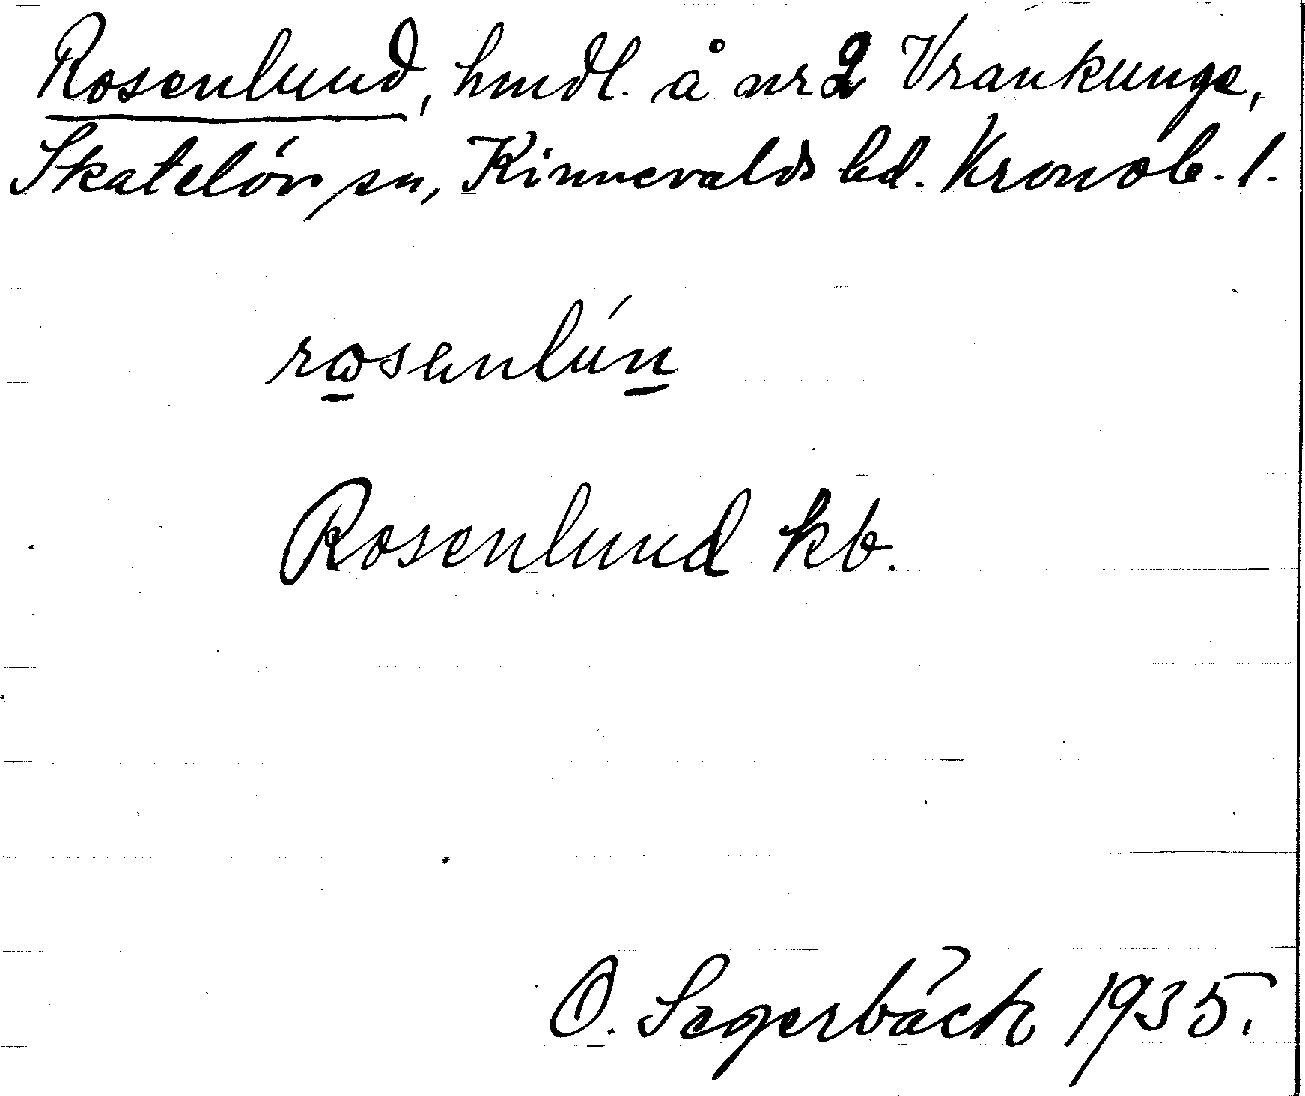 Rosenlund, hmdl. å nr 2 Vrankunge,
Skatelöv sn, Kinnevalds hd. Kronob. l.
rosenlún
Rosenlund kb.
O. Segerbäck 1935.